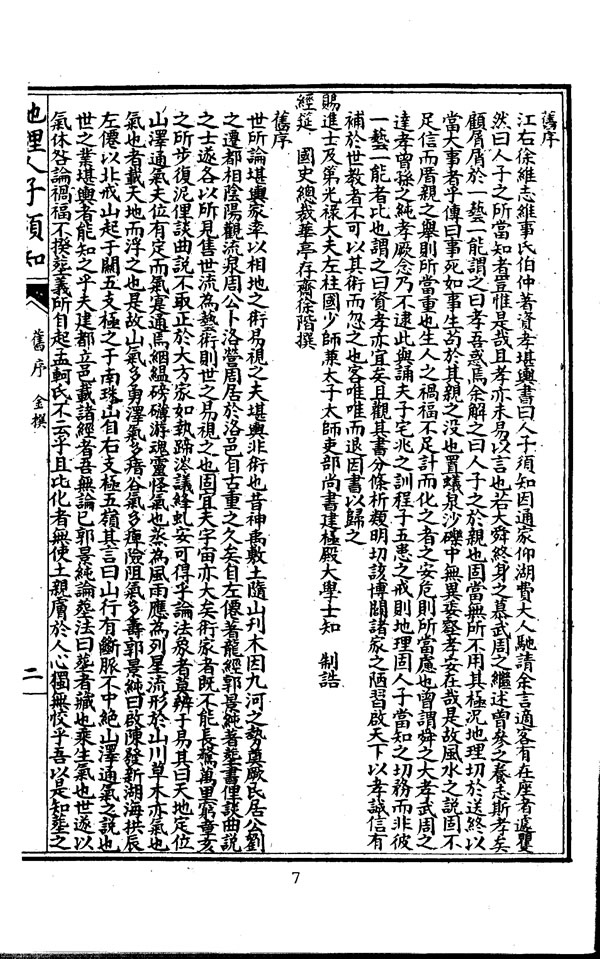 舊序
江右徐維志維事氏伯仲著資孝堪輿書曰人子須知因通家仰湖費大人馳請余言適客有在座者遽瞿
然曰人子之所當知者豈惟是哉且孝亦未易以言也若大舜終身之慕武周之繼述曾參之養志斯孝矣
顧屑屑於一藝一能謂之曰孝吾惑焉余解之曰人子之於親也固當無所不用其極況地理切於送終以
當大事者乎傳曰事死如事生苟於其親之沒也置蟻泉沙礫中無異委壑孝安在哉是故風水之說固不
足信而厝親之舉則所當重也生人之禍福不足計而化之者之安危則所當慮也曾謂舜之大孝武周之
達孝曾參之純孝厥念乃不逮此與誦夫子宅兆之訓程子五患之戒則地理固人子當知之切務而非彼
一藝一能者比也謂之曰資孝亦宜矣且觀其書分條析類明切該博闢諸家之陋習啟天下以孝誠信有
補於世教者不可以其術而忽之也客唯唯而退因書以歸之
賜進士及第光祿大夫左柱國少師兼太子太師吏部尚書建極殿大學士知 制誥
經筵 國史總裁華亭存齋徐階撰
舊序
世所論堪輿家率以相地之術易視之夫堪輿非術也昔神禹敷土隨山刊木因九河之勢奠厥民居公劉
之遷都相陰陽觀流泉周公卜洛營周居於洛邑自古重之久矣自左僊著龍經郭景純著葬書俚談曲說
之士遂各以所見售世流為藝術則世之易視之也固宜夫宇宙亦大矣術家者既不能長驅萬里窮章亥
之所步復泥俚談曲說不取正於大方家如執蹄涔議絳虬安可得乎論法象者莫辨于易其曰天地定位
山澤通氣夫位有定而氣寔通焉絪縕磅礴游魂靈怪氣也蒸為風雨應為列星流形於山川草木亦氣也
氣也者載天地而浮之也是故山氣多勇澤氣多瘖谷氣多痺險阻氣多壽郭景純曰啟陳發新湖海拱辰
左僊以北戒山起于關五支極之于南珠山自右支極五嶺其言曰山行有斷脈不中絶山澤通氣之說也
世之業堪輿者能知之乎夫建都立邑載諸經者吾無論已郭景純論葬法曰葬者藏也乘生氣也世遂以
氣休咎論禍福不揆葬義所自起孟軻氏不云乎且比化者無使土親膚於人心獨無恔乎吾以是知葬之
地理人子須知
舊序 金撰
二
7